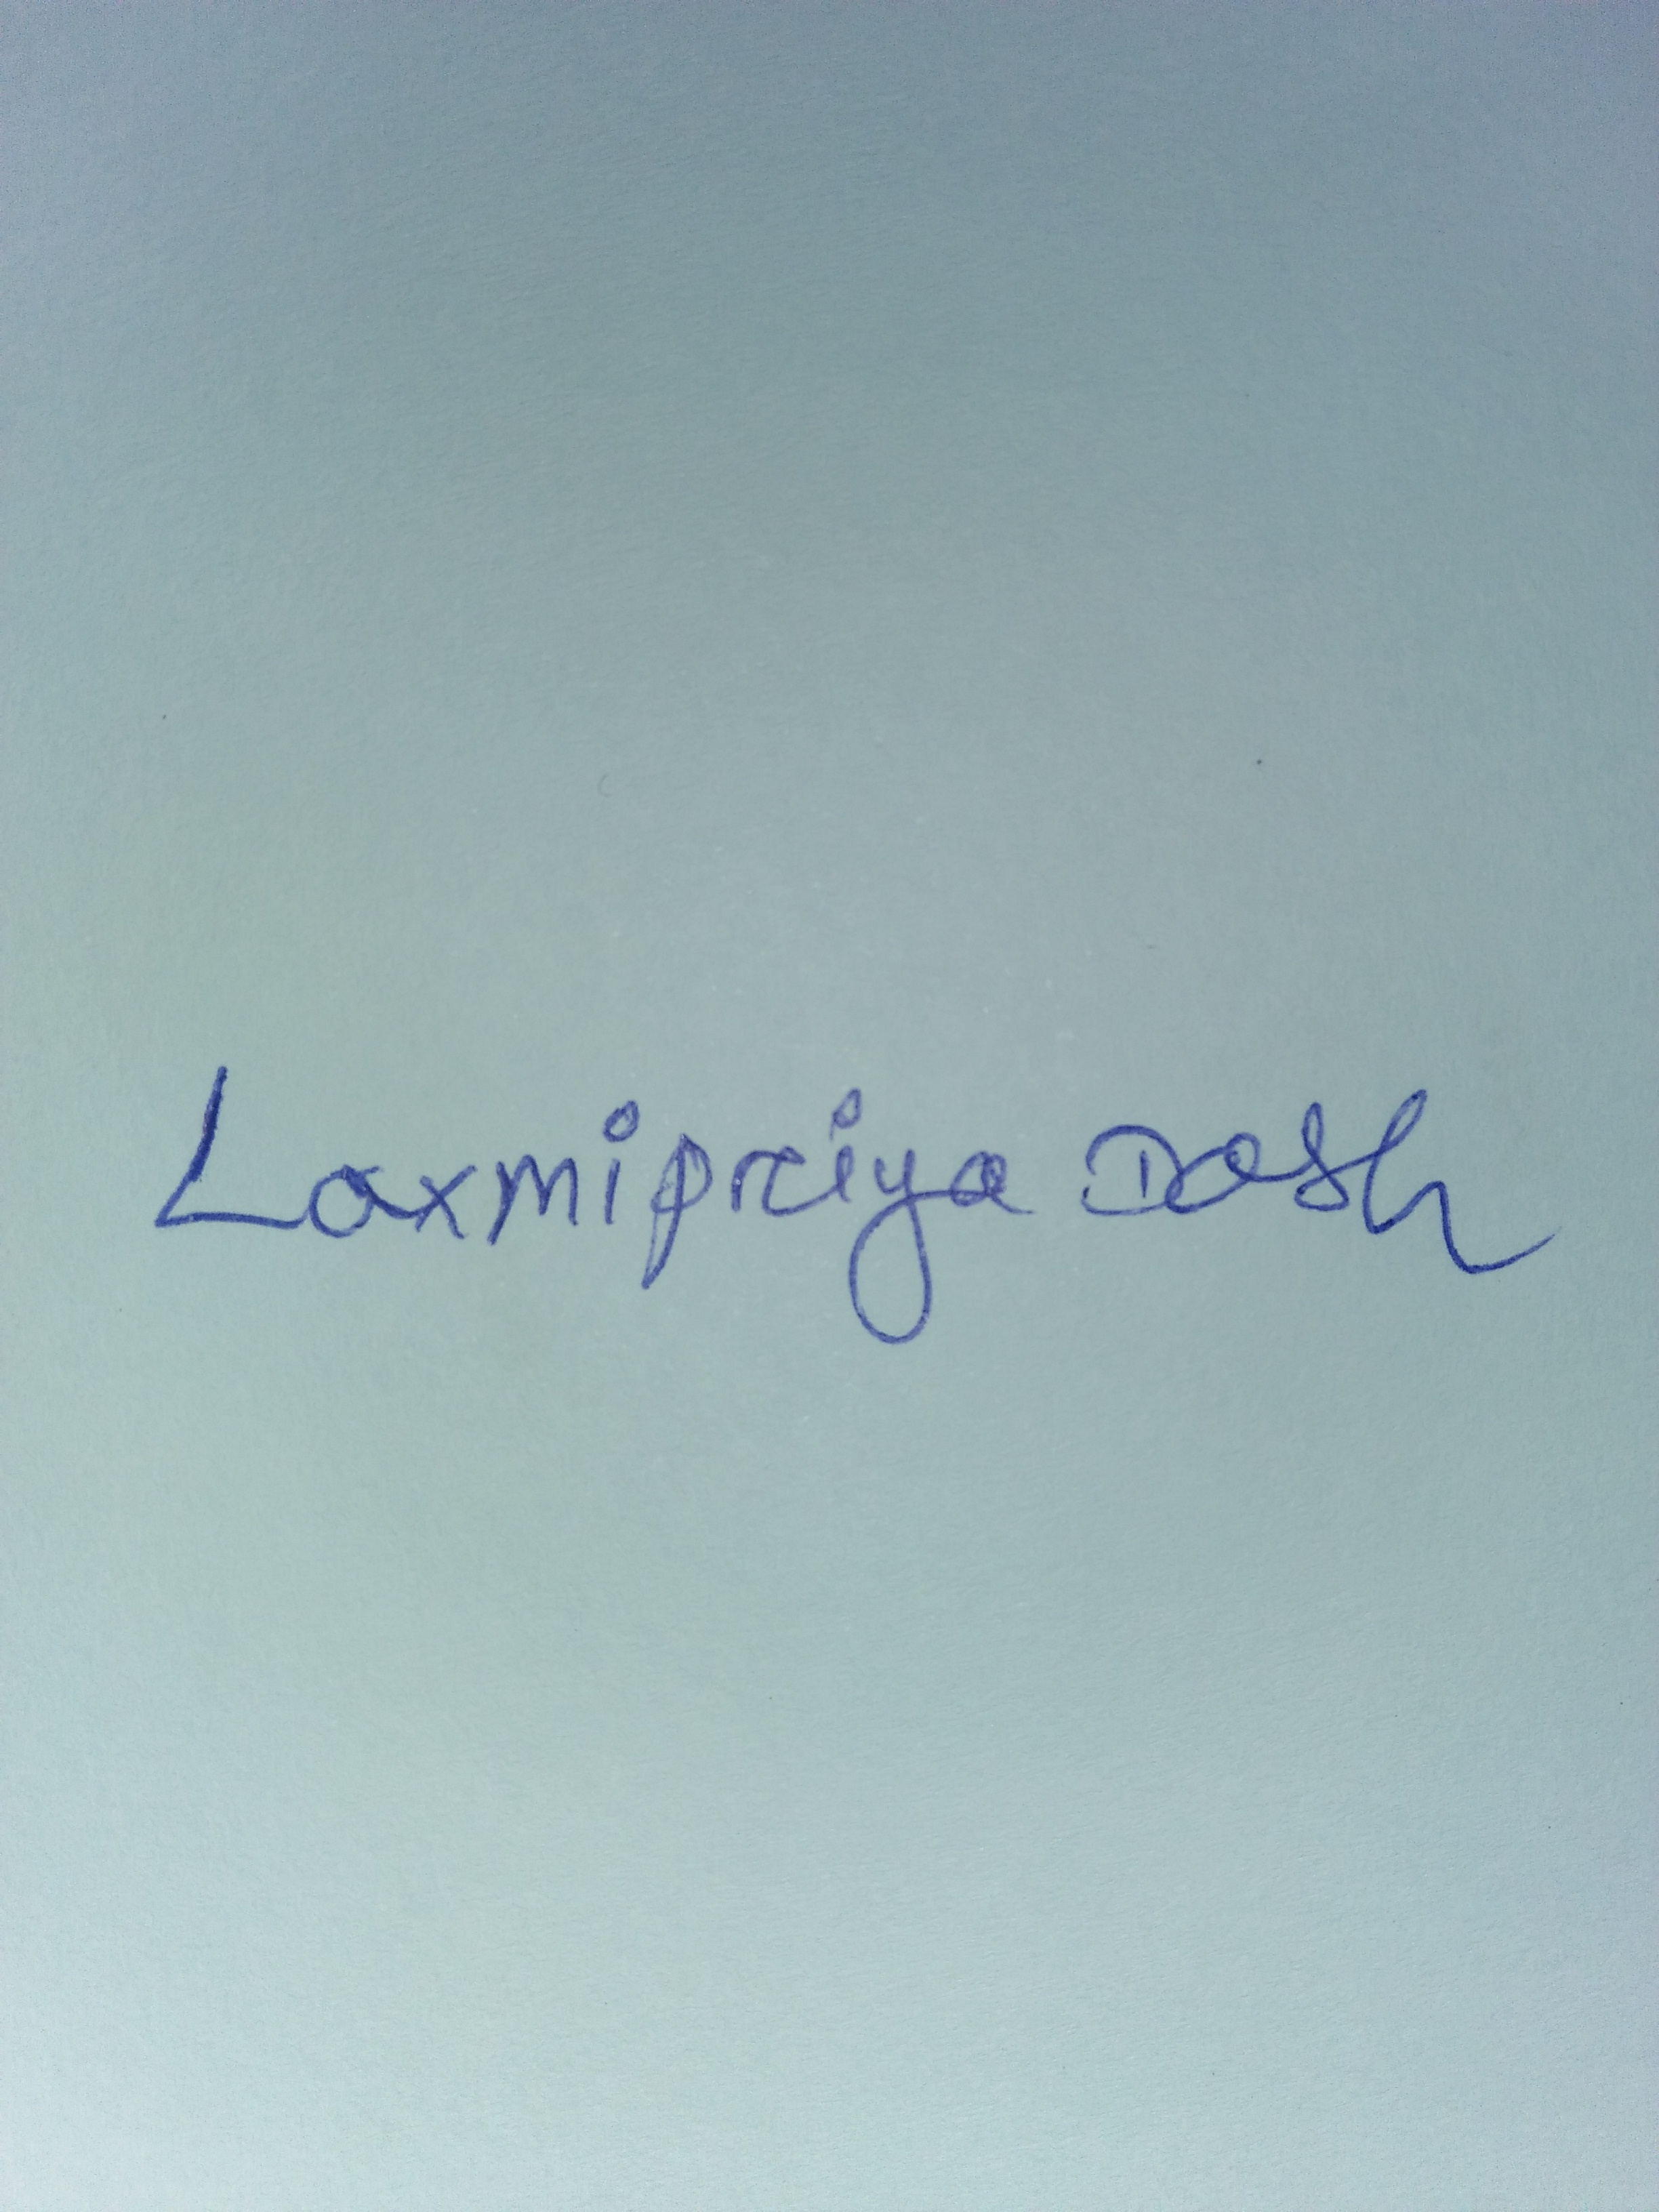 Laxmipriya Dash